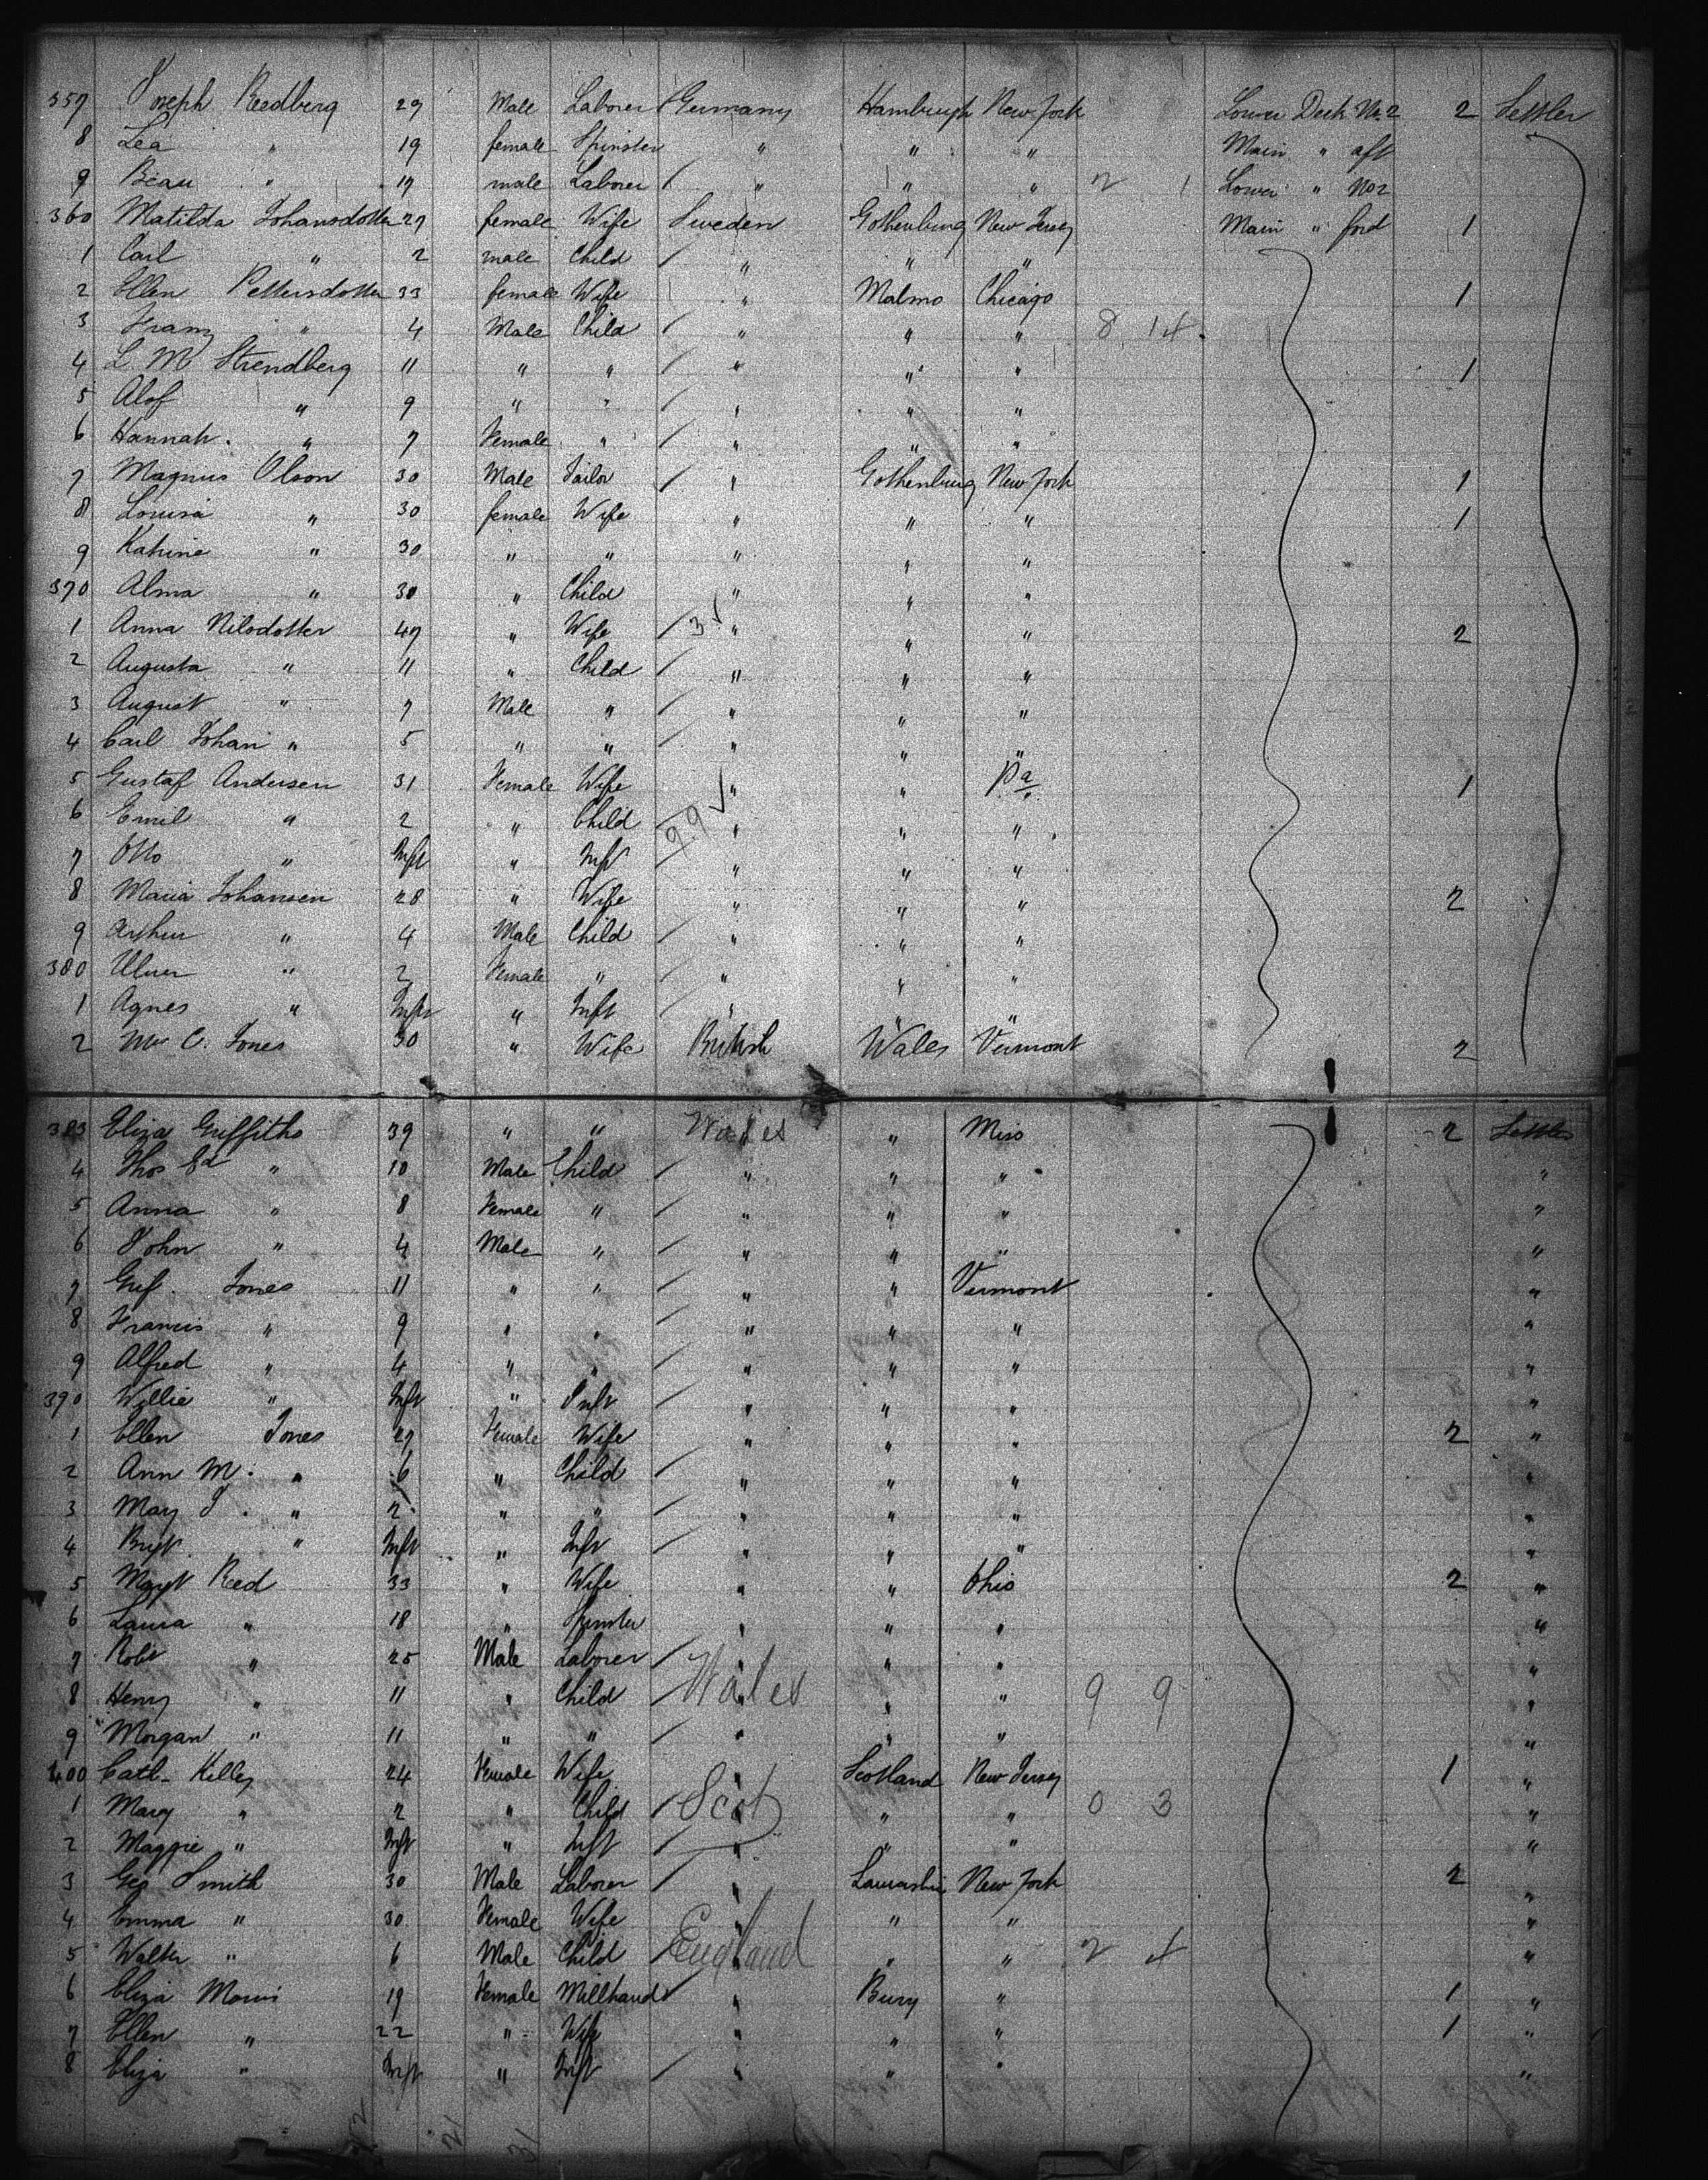 357 Joseph Reedberg 29 Male Laborer Germany Hamburgh New York Lower Deck No. 2 2 Settler
8 Lea " 19 female Spinster " " " Main " aft
9 Beau " 17 male Laborer / " " " 2 1 Lower " No 2
360 Matilda Johansdotter 27 female Wife Sweden Gothenburg New Jersey Main " ford 1
1 Carl " 2 male Child / " " "
2 Ellen Pettersdotter 33 female Wife " Malmo Chicago 1
3 Franz " 4 Male Child / " " " 8 14
4 L M Strendberg 11 " " / " " " 1
5 Alof " 9 " " / " " "
6 Hannah " 7 Female " / " " "
7 Magnus Olson 30 Male Tailor / " Gothenburg New York 1
8 Louisa " 30 female Wife " " " 1
9 Katrine " 30 " " " " "
370 Alma " 30 " Child " " "
1 Anna Nilsdotter 47 " Wife / 3 ✓ " " " 2
2 Augusta " 11 " Child / " " "
3 August " 7 Male " / " " "
4 Carl Johan " 5 " " / " " "
5 Gustaf Andersen 31 Female Wife " " Pa 1
6 Emil " 2 " Child / 99 ✓ " " "
7 Otto " Inft " Inft / " " "
8 Maria Johansen 28 " Wife " " " 2
9 Arthur " 4 Male Child / " " "
380 " 2 Female " / " " "
1 Agnes " Inft " Inft / " " "
2 Mrs C. Jones 30 " Wife British Wales Vermont 2
383 Eliza Griffiths 39 " " Wales " " Miss 2 Settler
4 Thos Ed " 10 Male Child / " " " "
5 Anna " 8 Female " / " " " "
6 John " 4 Male " / " " " "
7 Grif. Jones 11 " " / " " Vermont "
8 Francis " 9 " " / " " " "
9 Alfred " 4 " " / " " " "
390 Willie " Inft " Inft / " " " "
1 Ellen Jones 27 Female Wife " " " 2 "
2 Ann M. " 6 " Child / " " " "
3 Mary J. " 2 " " / " " " "
4 " Inft " Inft / " " " "
5 Margt Reed 33 " Wife " " Ohio 2 "
6 Laura " 18 " Spinster " " " "
7 Robt " 25 Male Laborer / " " " "
8 Henry " 11 " Child / Wales " " " 9 9 "
9 Morgan " 11 " " / " " " "
400 Cath. Kelley 24 Female Wife " Scotland New Jersey 1 "
1 Mary " 2 " Child / Scot " " " 0 3 "
2 Maggie " Inft " Inft / " " " "
3 Geo Smith 30 Male Laborer / " Lancashire New York 2 "
4 Emma " 30 Female Wife " " " "
5 Walter " 6 Male Child / England " " " 2 4 "
6 Eliza Morris 19 Female Millhand / " Bury " 1 "
7 Ellen " 22 " Wife " " " 1 "
8 Eliza " Inft " Inft / " " " "